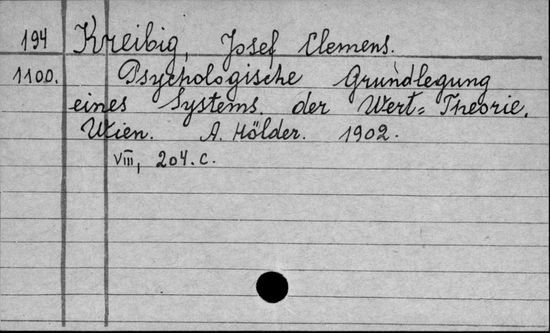 194 Kreibig, Josef Clemens.
1100. Psychologische Grundlegung
eines Systems der Wert=Theorie.
Wien. A. Hölder. 1902.
VIII, 204. c.